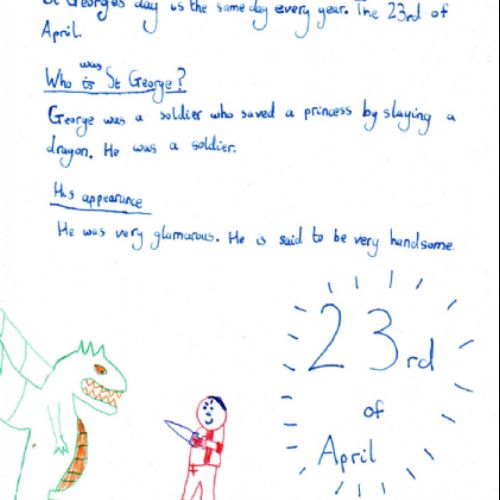 St Georges day is the same day every year. The 23rd of
April.
Who was is St George?
George was a soldier who saved a princess by slaying a
dragon. He was a soldier.
His appearance
He was very glamarous. He is said to be very handsome.
23rd
of
April